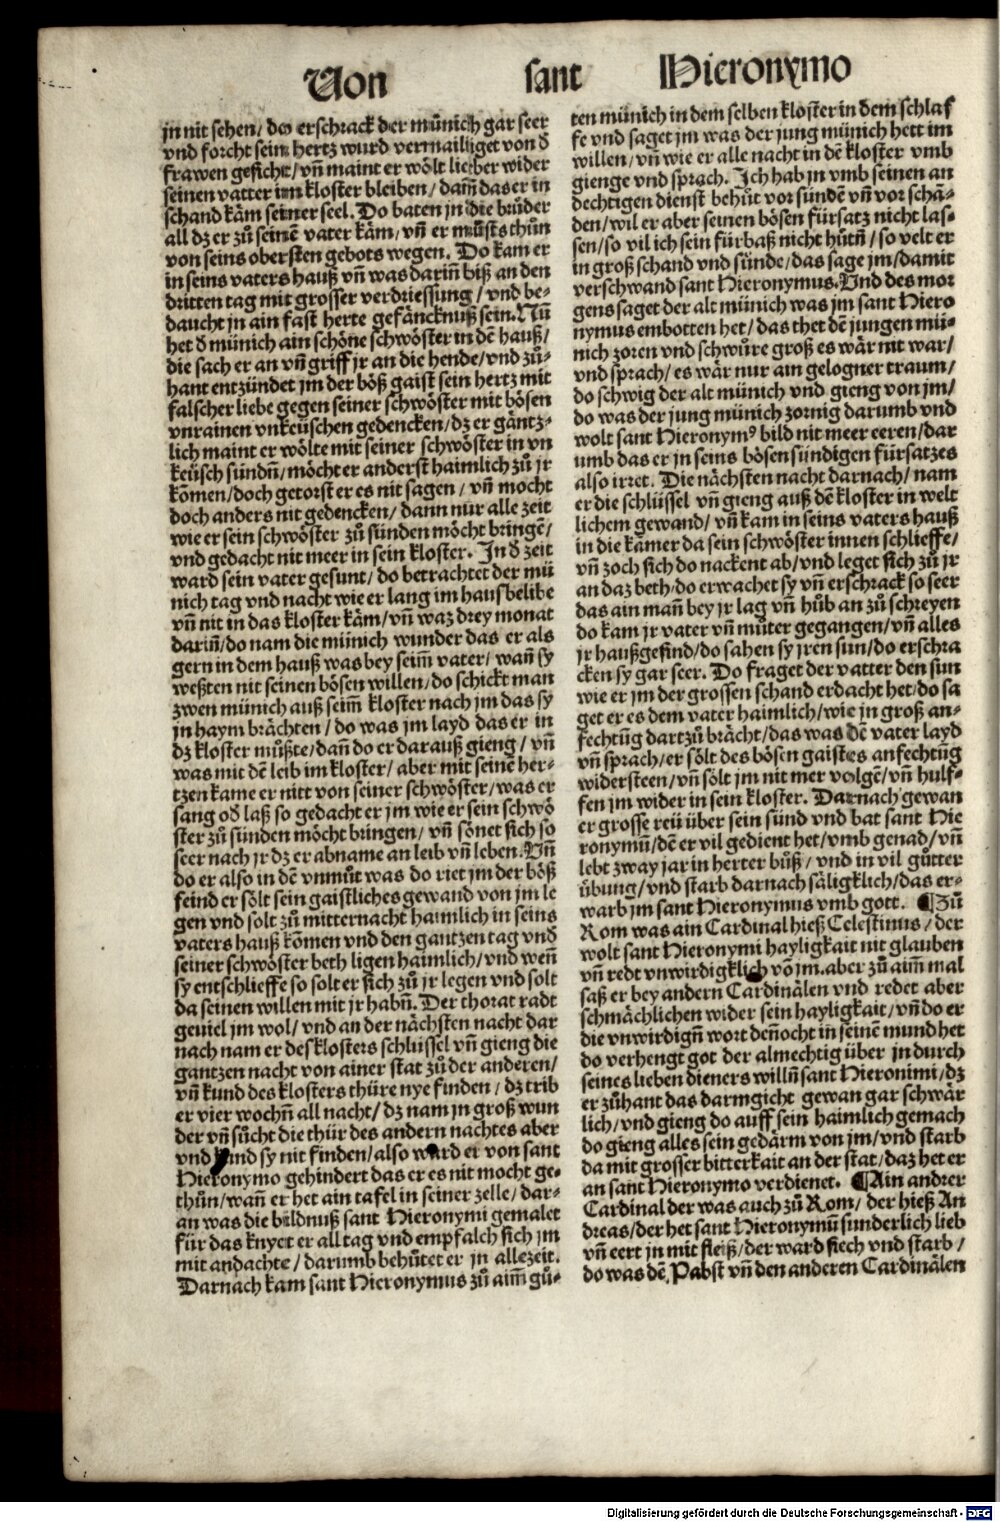 Von sant Hieronymo
jn nit sehen/ des erschrack der münich gar seer
vnd forcht sein hertz wurd vermailiget von d̄
frawen gesicht/ vñ maint er wölt lieber wider
seinen vatter im kloster bleiben/ dañ das er in
schand käm seiner seel. Do baten jn die brüder
all dz er zů seinē vater käm/ vñ er můsts thůn
von seins obersten gebots wegen. Do kam er
in seins vaters hauß vñ was dariñ biß an den
dritten tag mit grosser verdriessung/ vnd be-
daucht jn ain fast herte gefäncknuß sein. Nū
het d̄ münich ain schöne schwöster in dē hauß/
die sach er an vñ griff jr an die hende/ vnd zů-
hant entzündet jm der böß gaist sein hertz mit
falscher liebe gegen seiner schwöster mit bösen
vnrainen vnkeüschen gedencken/ dz er gäntz-
lich maint er wölte mit seiner schwöster in vn
keüsch sündñ/ möcht er anderst haimlich zů jr
kōmen/ doch getorst er es nit sagen/ vñ mocht
doch anders nit gedencken/ dann nur alle zeit
wie er sein schwöster zů sünden möcht bringē/
vnd gedacht nit meer in sein kloster. In d̄ zeit
ward sein vater gesunt/ do betrachtet der mü
nich tag vnd nacht wie er lang im haus belibe
vñ nit in das kloster käm/ vñ waz drey monat
dariñ/ do nam die münich wunder das er als
gern in dem hauß was bey seim̄ vater/ wañ sy
weßten nit seinen bösen willen/ do schickt man
zwen münich auß seim̄ kloster nach jm das sy
jn haym brächten/ do was jm layd das er in
dz kloster müßte/ dañ do er darauß gieng/ vñ
was mit dē leib im kloster/ aber mit seinē her-
tzen kame er nitt von seiner schwöster/ was er
sang od̄ laß so gedacht er jm wie er sein schwö
ster zů sünden möcht bringen/ vñ sönet sich so
seer nach jr dz er abname an leib vñ leben. Vñ
do er also in dē vnmůt was do riet jm der böß
feind er sölt sein gaistliches gewand von jm le
gen vnd solt zů mitternacht haimlich in seins
vaters hauß kōmen vnd den gantzen tag vnd̄
seiner schwöster beth ligen haimlich/ vnd weñ
sy entschlieffe so solt er sich zů jr legen vnd solt
da seinen willen mit jr habñ. Der thorat radt
geuiel jm wol/ vnd an der nächsten nacht dar
nach nam er des klosters schlüssel vñ gieng die
gantzen nacht von ainer stat zů der anderen/
vñ kund des klosters thüre nye finden/ dz trib
er vier wochñ all nacht/ dz nam jn groß wun
der vñ sůcht die thür des andern nachtes aber
vnd kund sy nit finden/ also ward er von sant
Hieronymo gehindert das er es nit mocht ge-
thůn/ wañ er het ain tafel in seiner zelle/ dar-
an was die bildnuß sant Hieronymi gemalet
für das knyet er all tag vnd empfalch sich jm
mit andachte/ darumb behůtet er jn allezeit.
Darnach kam sant Hieronymus zů aim̄ gů-
ten münich in dem selben kloster in dem schlaf
fe vnd saget jm was der jung münich hett im
willen/ vñ wie er alle nacht in dē kloster vmb
gienge vnd sprach. Ich hab jn vmb seinen an
dechtigen dienst behůt vor sündē vñ vor schā-
den/ wil er aber seinen bösen fürsatz nicht las-
sen/ so vil ich sein fürbaß nicht hütñ/ so velt er
in groß schand vnd sünde/ das sage jm/ damit
verschwand sant Hieronymus. Vnd des mor
gens saget der alt münich was jm sant Hiero
nymus embotten het/ das thet dē jungen mü-
nich zoren vnd schwůre groß es wär nit war/
vnd sprach/ es wär nur ain gelogner traum/
do schwig der alt münich vnd gieng von jm/
do was der jung münich zornig darumb vnd
wolt sant Hieronymꝰ bild nit meer eeren/ dar
umb das er jn seins bösen sündigen fürsatzes
also irret. Die nächsten nacht darnach/ nam
er die schlüssel vñ gieng auß dē kloster in welt
lichem gewand/ vñ kam in seins vaters hauß
in die kāmer da sein schwöster innen schlieffe/
vñ zoch sich do nackent ab/ vnd leget sich zů jr
an daz beth/ do erwachet sy vñ erschrack so seer
das ain mañ bey jr lag vñ hůb an zů schreyen
do kam jr vater vñ můter gegangen/ vñ alles
jr haußgesind/ do sahen sy jren sun/ do erschra
cken sy gar seer. Do fraget der vatter den sun
wie er jm der grossen schand erdacht het/ do sa
get er es dem vater haimlich/ wie jn groß an-
fechtūg dartzů brächt/ das was dē vater layd
vñ sprach/ er sölt des bösen gaistes anfechtūg
widersteen/ vñ sölt jm nit mer volgē/ vñ hulf-
fen jm wider in sein kloster. Darnach gewan
er grosse reü über sein sünd vnd bat sant Hie
ronymū/ dē er vil gedient het/ vmb genad/ vñ
lebt zway jar in herter bůß/ vnd in vil gůtter
übung/ vnd starb darnach säligklich/ das er-
warb jm sant Hieronymus vmb gott. ¶Zů
Rom was ain Cardinal hieß Celestinus/ der
wolt sant Hieronymi hayligkait nit glauben
vñ redt vnwirdigklich vō jm. aber zů aim̄ mal
saß er bey andern Cardinälen vnd redet aber
schmächlichen wider sein hayligkait/ vñ do er
die vnwirdigñ wort deñocht in seinē mund het
do verhengt got der almechtig über jn durch
seines lieben dieners willñ sant Hieronimi/ dz
er zůhant das darmgicht gewan gar schwär
lich/ vnd gieng do auff sein haimlich gemach
do gieng alles sein gedärm von jm/ vnd starb
da mit grosser bitterkait an der stat/ daz het er
an sant Hieronymo verdienet. ¶Ain andrer
Cardinal der was auch zů Rom/ der hieß An
dreas/ der het sant Hieronymū sunderlich lieb
vñ eert jn mit fleiß/ der ward siech vnd starb/
do was dē Pabst vñ den anderen Cardinälen
Digitalisierung gefördert durch die Deutsche Forschungsgemeinschaft - DFG